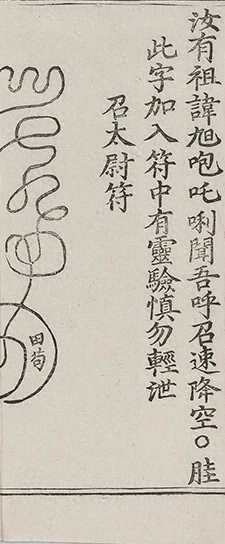 汝有祖諱旭咆吒唎聞吾呼召速降空○胿
此字加入符中有靈驗慎勿輕泄
召太尉符
田荀